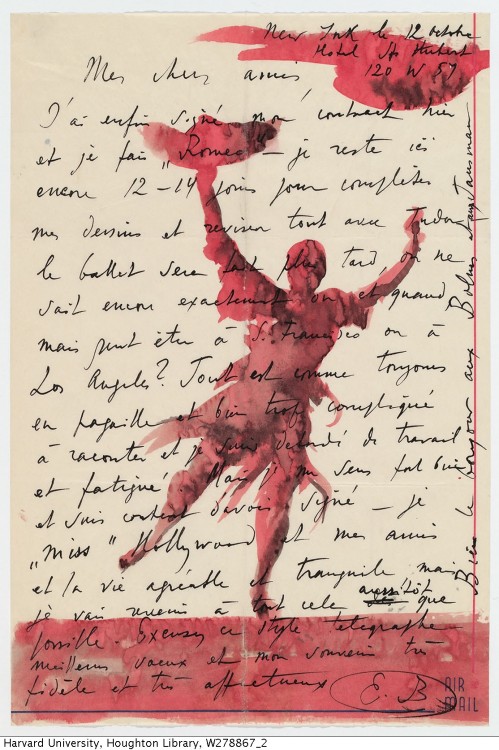 New York le 12 octobre
Hotel St Hubert
120 W 57
Mes chers amis
J'ai enfin signé mon contract hier
et je fais "Romeo" – je reste ici
encore 12–14 jours pour complèter
mes dessins et reviser tout avec Tudor
le ballet sera fait plus tard on ne
sait encore exactement ou et quand
mais peut être à S. Francisco ou à
Los Angeles? Tout est comme toujours
en pagaille et bien trop compliqué
à raconter et je suis de travail
et fatigué. Mais je me sens fort bien
et suis content d'avoir signé – je
"miss" Hollywood et mes amis
et la vie agréable et tranquile mais
je vais revenir à tout cela aussitôt que
possible. Excusez ce style telegraphe
meilleurs voeux et mon souvenir très
fidèle et très affectueux E. B
Bien le bonjour aux Bolms et aux Tansman
AIR
MAIL
Harvard University, Houghton Library, W278867_2